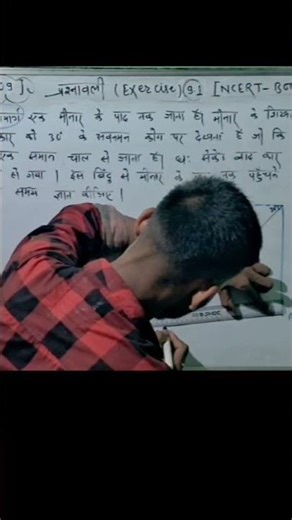 09]. प्रश्नावली (Exercise) 9.1 [NCERT-
एक मीनार के पाद तक जाता है। मीनार के
कार को 30° के अवनमन कोण पर देखता है जो कि
एक समान चाल से जाता है। छः सेकेंड बाद कार
हो गया। इस बिंदु से मीनार के तक पहुँचने
समय ज्ञात कीजिए।